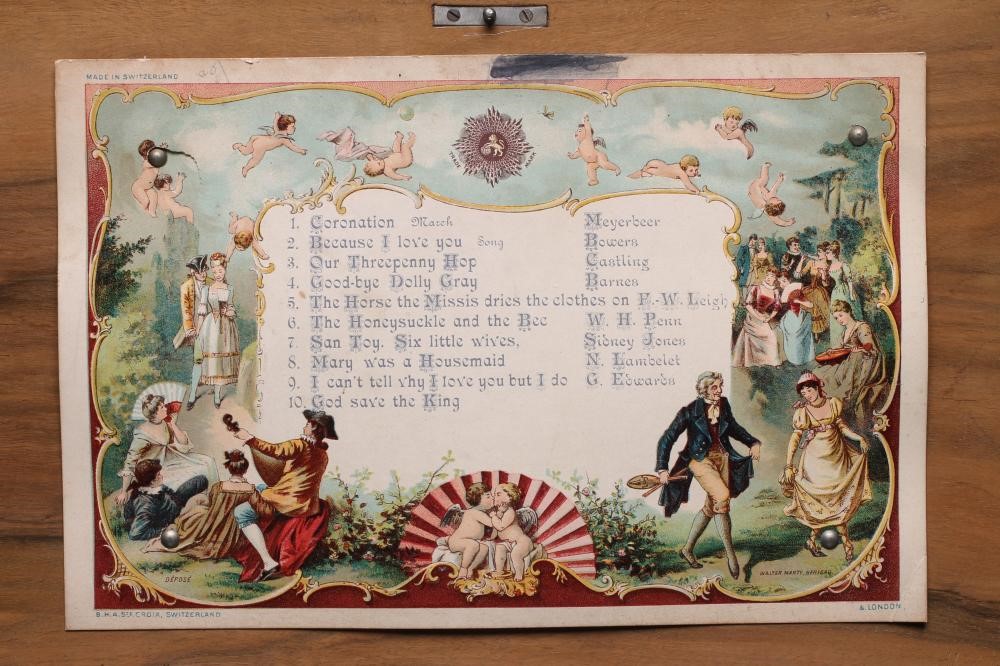 MADE IN SWITZERLAND
TRADE MARK
1. Coronation March Meyerbeer
2. Because I love you Song Bowers
3. Our Threepenny Hop Castling
4. Good-bye Dolly Gray Barnes
5. The Horse the Missis dries the clothes on F.-W. Leigh
6. The Honeysuckle and the Bee W. H. Penn
7. San Toy. Six little wives, Sidney Jones
8. Mary was a Housemaid N. Lambelet
9. I can't tell why I love you but I do G. Edwards
10. God save the King
DÉPOSÉ
WALTER MARTY, HERISAU
B.H.A. STE CROIX, SWITZERLAND
& LONDON.